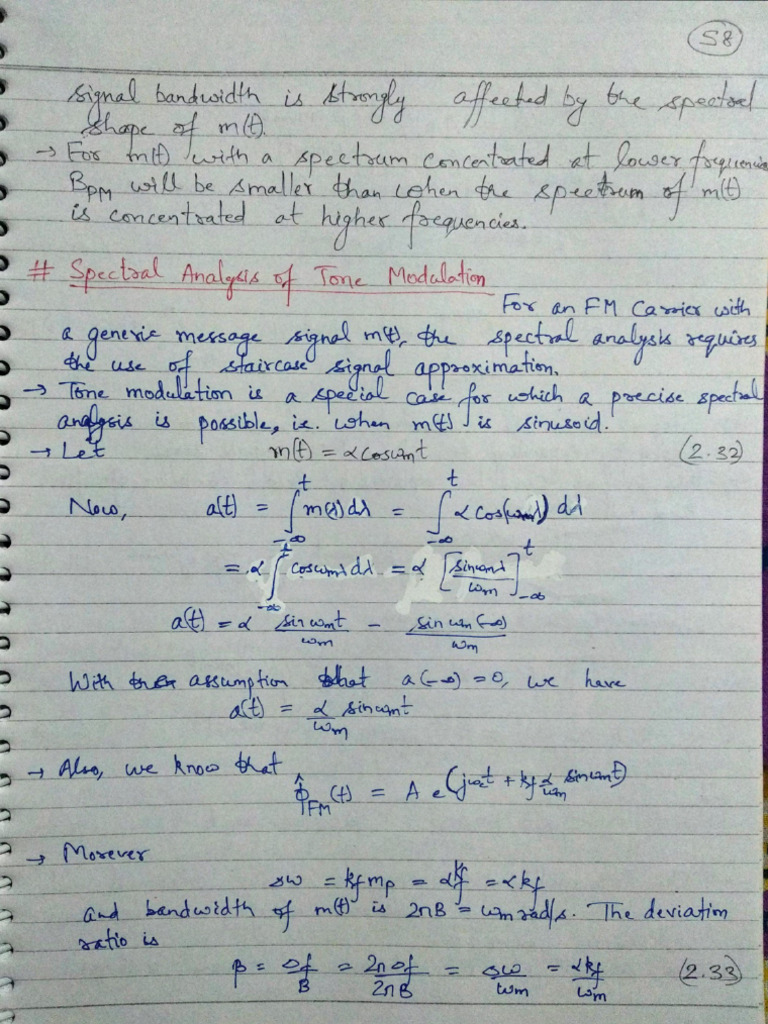 58
signal bandwidth is strongly affected by the spectral
shape of m(t).
→ For m(t) with a spectrum concentrated at lower frequencies
B_PM will be smaller than when the spectrum of m(t)
is concentrated at higher frequencies.
# Spectral Analysis of Tone Modulation
For an FM Carrier with
a generic message signal m(t), the spectral analysis requires
the use of staircase signal approximation.
→ Tone modulation is a special case for which a precise spectral
analysis is possible, i.e. when m(t) is sinusoid.
→ Let m(t) = α cos ωmt (2.32)
Now, a(t) = ∫_{-∞}^{t} m(λ) dλ = ∫_{-∞}^{t} α cos(ωmλ) dλ
= α ∫_{-∞}^{t} cos ωmλ dλ = α [sin ωmλ / ωm]_{-∞}^{t}
a(t) = α sin ωmt / ωm - sin ωm(-∞) / ωm
With assumption that a(-∞) = 0, we have
a(t) = α/ωm sin ωmt
→ Also, we know that
φ̂_FM(t) = A e^(jωct + kf α/ωm sin ωmt)
→ Morever
Δω = kf mp = αkf = αkf
and bandwidth of m(t) is 2πB = ωm rad/s. The deviation
ratio is
β = Δf/B = 2πΔf/2πB = Δω/ωm = αkf/ωm (2.33)